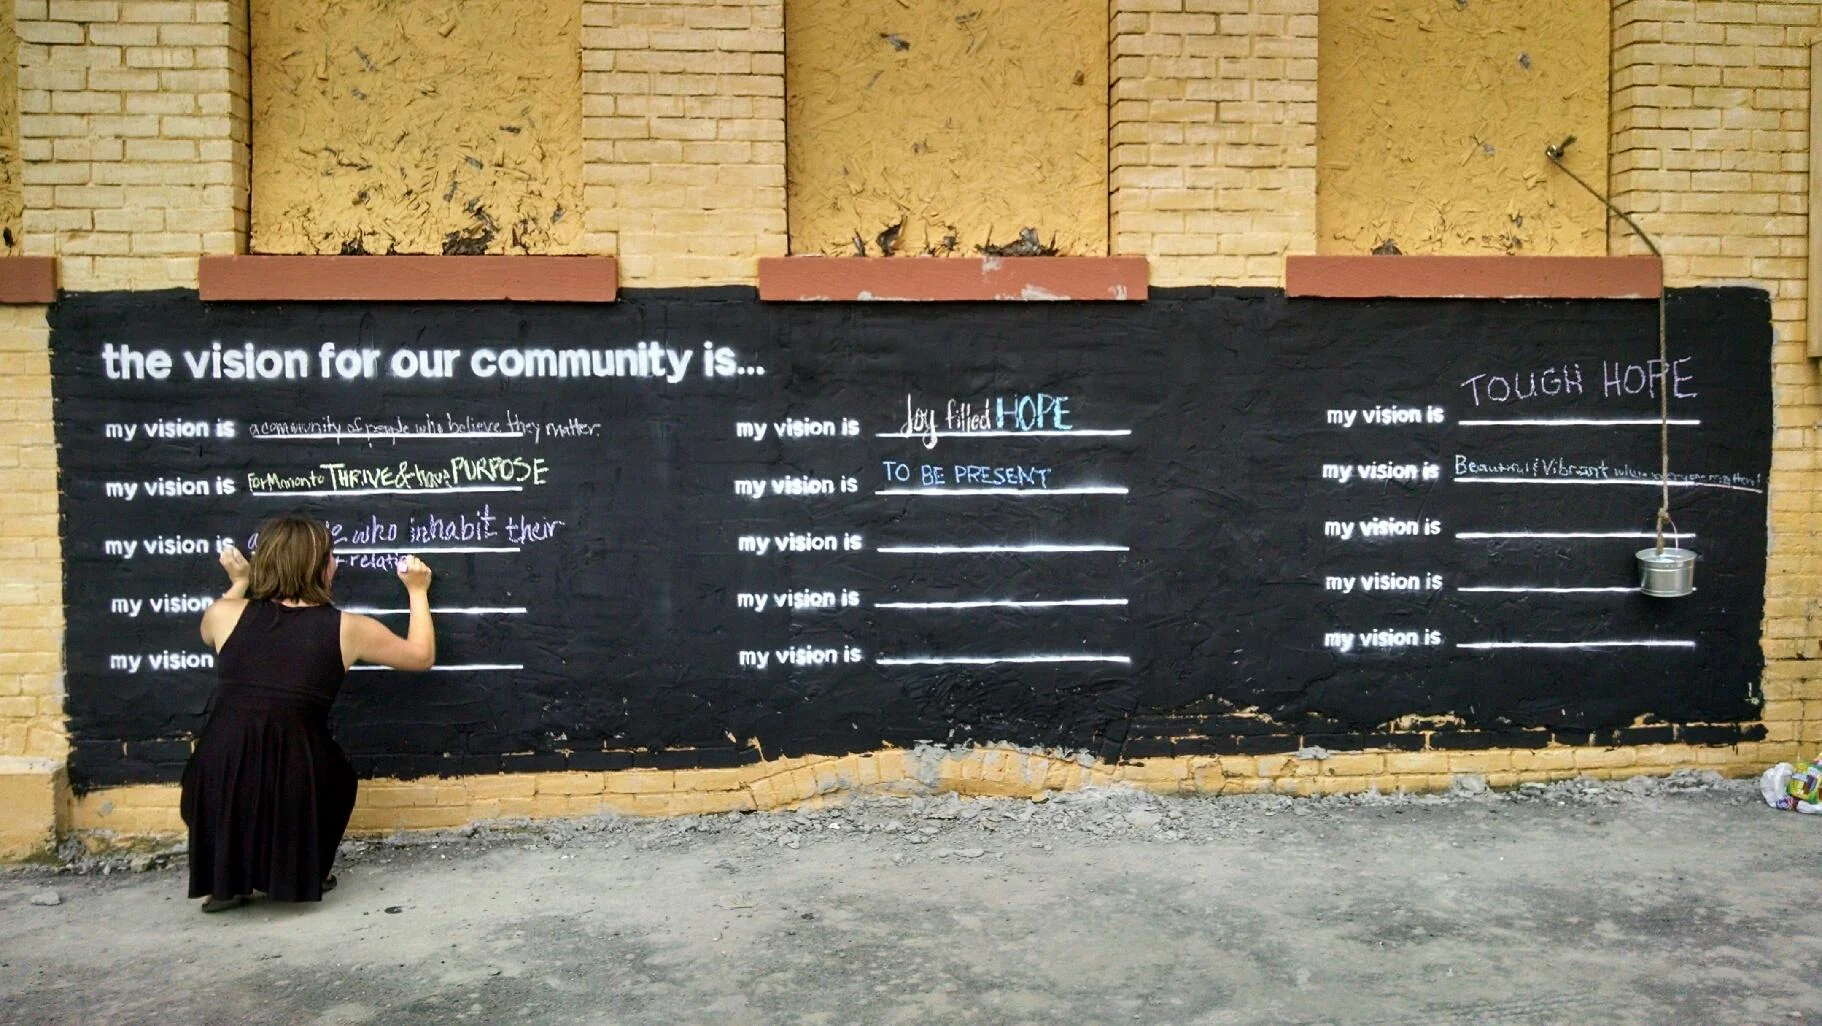 the vision for our community is...
my vision is a community of people who believe they matter.
my vision is For Marion to THRIVE & have PURPOSE
my vision is who inhabit their
+ relatio
my vision
my vision
my vision is Joy filled HOPE
my vision is TO BE PRESENT
my vision is
my vision is
my vision is
my vision is TOUGH HOPE
my vision is Beautiful & Vibrant where everyone matters!
my vision is
my vision is
my vision is